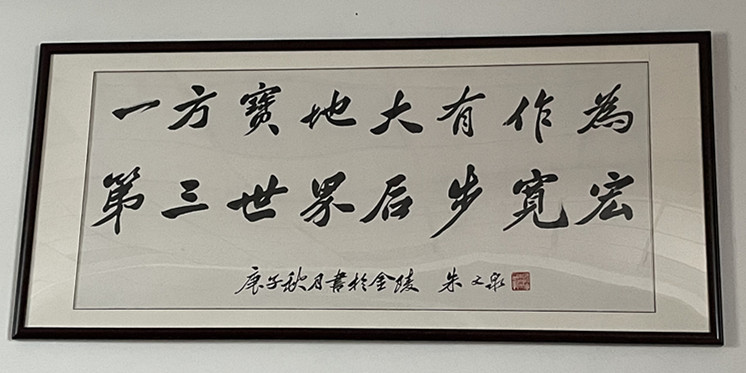 一方寶地大有作為
第三世界后步寬宏
庚子秋月書於金陵 朱文泉